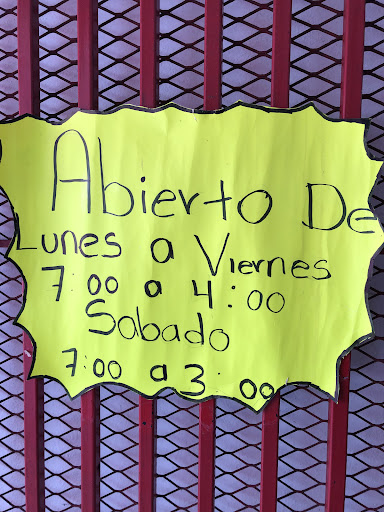 Abierto De
Lunes a Viernes
7:00 a 4:00
Sabado
7:00 a 3:00